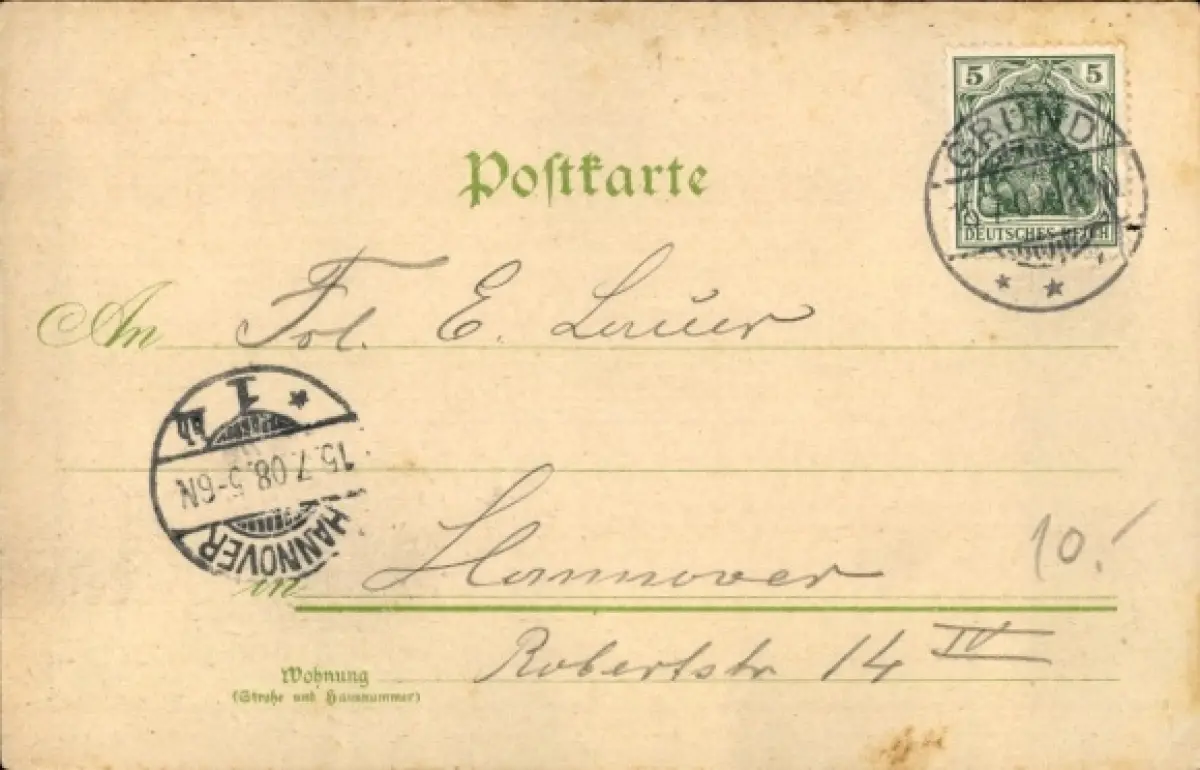 5 5
GRUND
DEUTSCHES REICH
Postkarte
An Frl. E. Lauer
1
15.7.08.5-6N
HANNOVER
in Hannover
10.
Robertstr 14 IV
Wohnung
(Straße und Hausnummer)